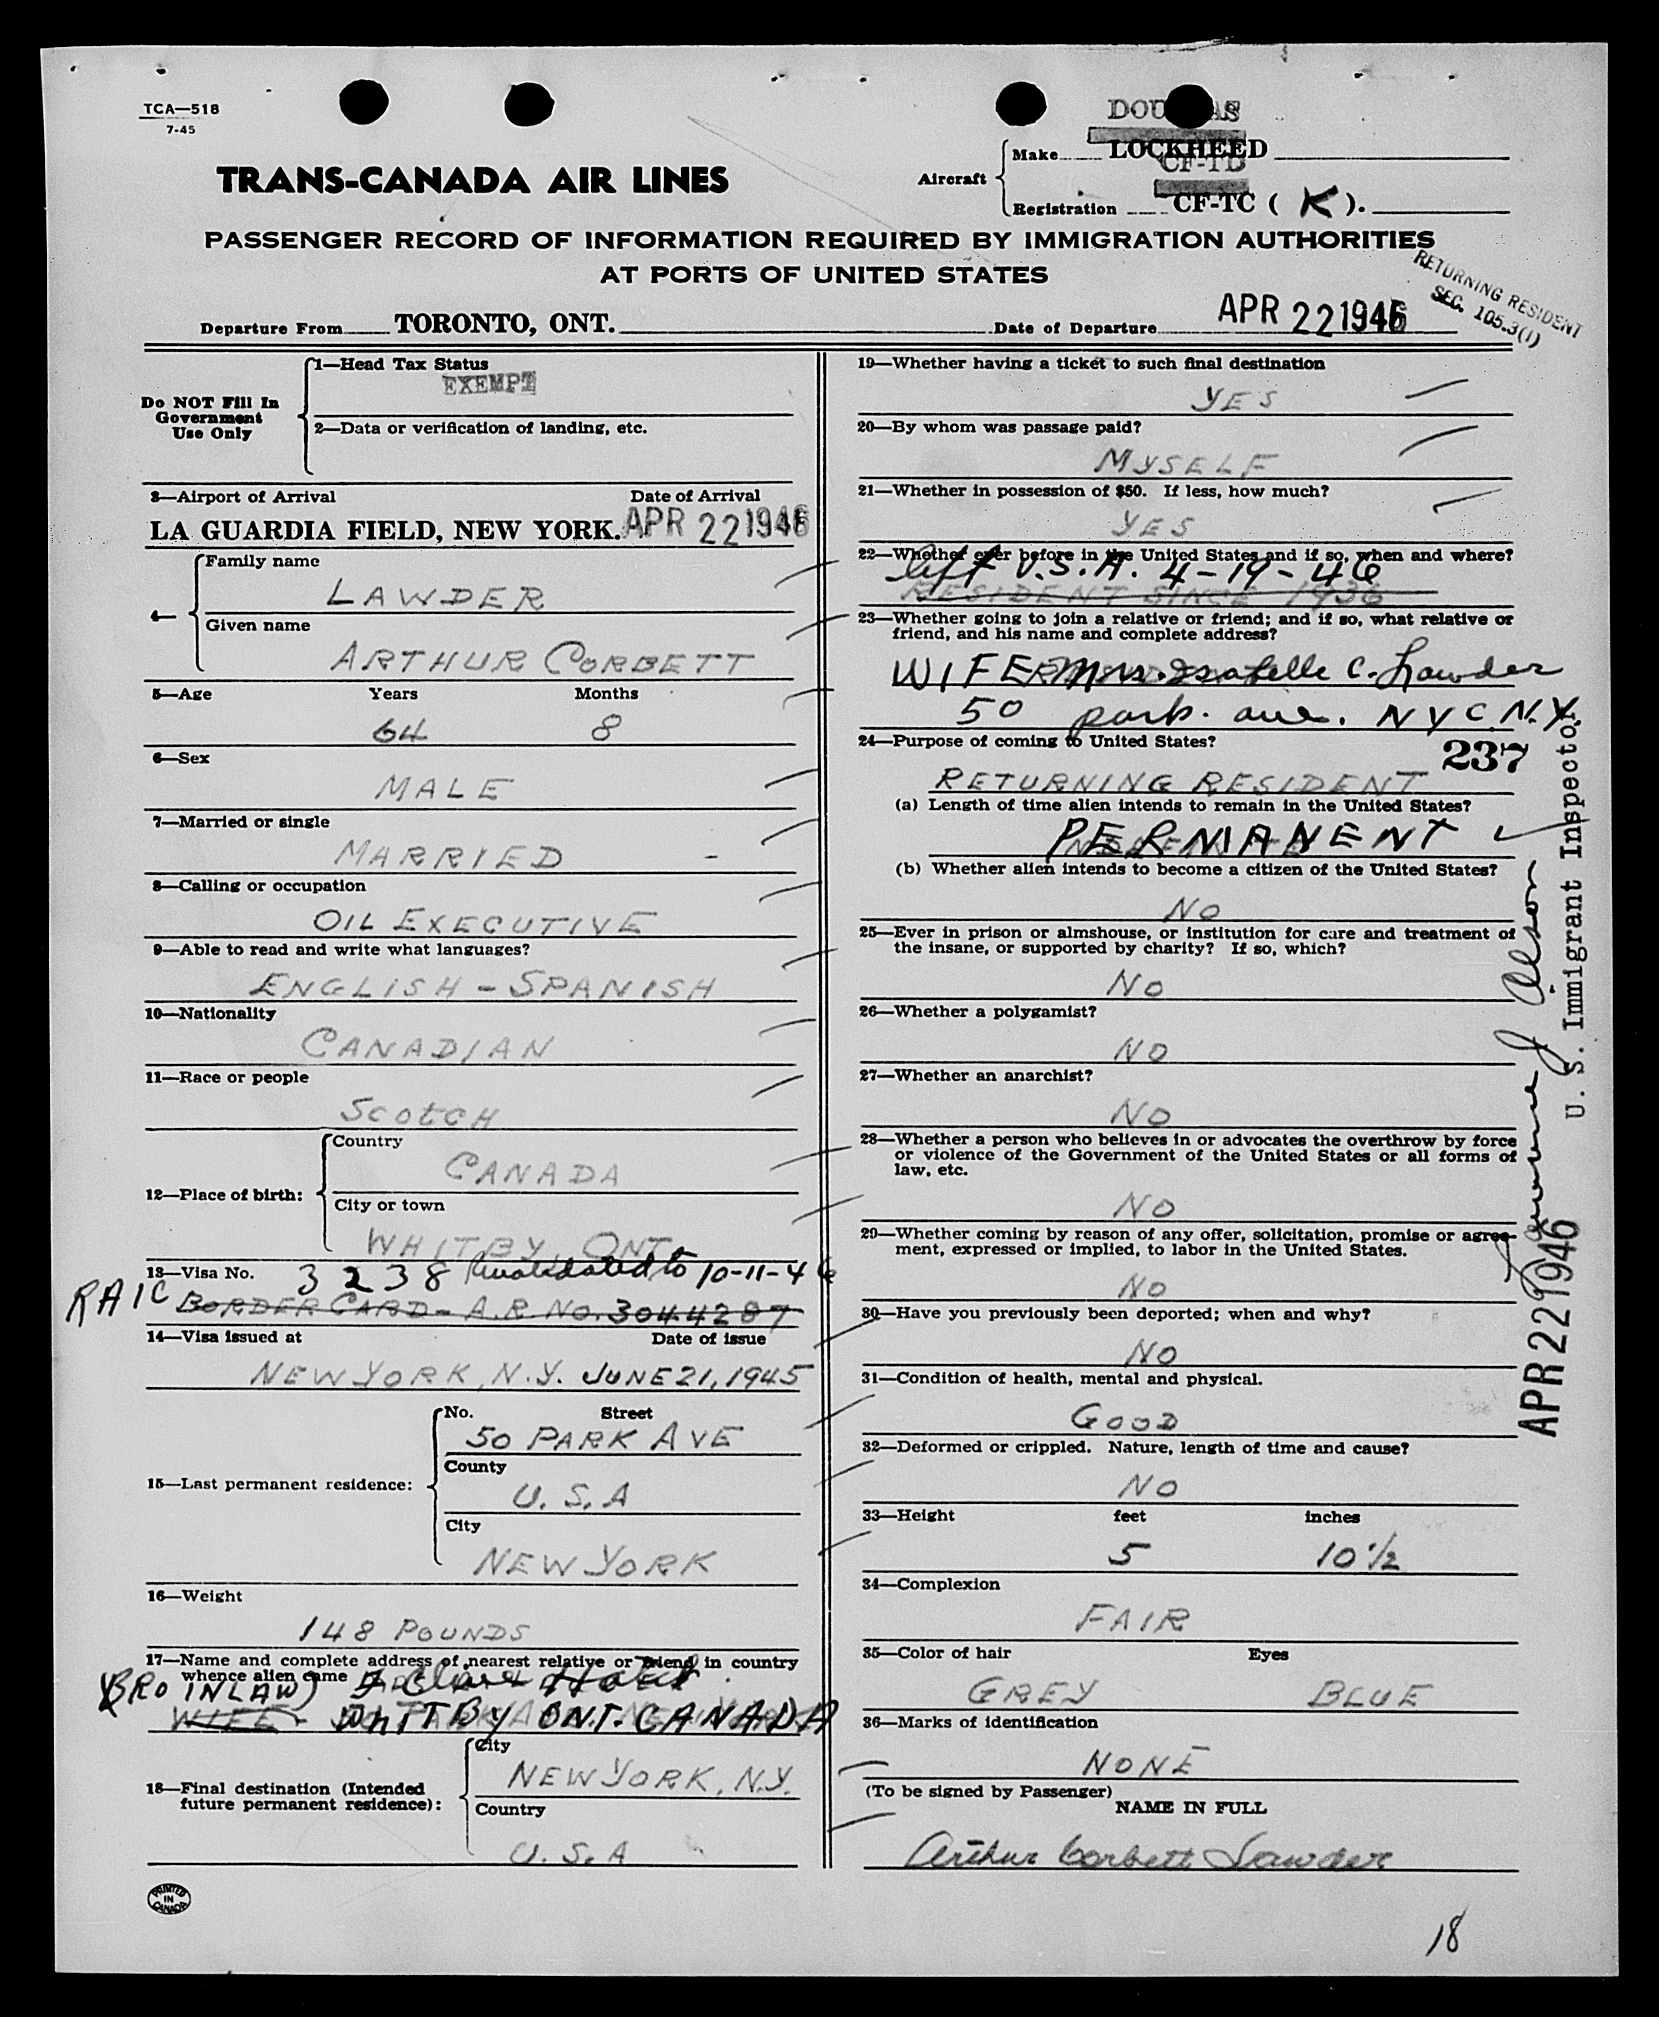 TCA—518
7-45
DOUGLAS
Aircraft
Make LOCKHEED
CF-TD
Registration CF-TC ( K ).
TRANS-CANADA AIR LINES
PASSENGER RECORD OF INFORMATION REQUIRED BY IMMIGRATION AUTHORITIES
AT PORTS OF UNITED STATES
RETURNING RESIDENT
SEC. 105.3(1)
Departure From TORONTO, ONT. Date of Departure APR 22 1946
Do NOT Fill In
Government
Use Only
1—Head Tax Status
EXEMPT
2—Data or verification of landing, etc.
3—Airport of Arrival Date of Arrival
LA GUARDIA FIELD, NEW YORK. APR 22 1946
4—
Family name
LAWDER
Given name
ARTHUR CORBETT
5—Age Years Months
64 8
6—Sex
MALE
7—Married or single
MARRIED
8—Calling or occupation
OIL EXECUTIVE
9—Able to read and write what languages?
ENGLISH – SPANISH
10—Nationality
CANADIAN
11—Race or people
SCOTCH
12—Place of birth:
Country
CANADA
City or town
WHITBY, ONT.
13—Visa No. 3238 Revalidated to 10-11-46
RAIC BORDER CARD – A.R. NO. 3044287
14—Visa issued at Date of issue
NEW YORK, N.Y. JUNE 21, 1945
15—Last permanent residence:
No. Street
50 PARK AVE
County
U.S.A
City
NEW YORK
16—Weight
148 POUNDS
17—Name and complete address of nearest relative or friend in country
whence alien came
(BRO IN LAW) Hotel
WIFE – WHITBY ONT. CANADA
18—Final destination (Intended
future permanent residence):
City
NEW YORK, N.Y.
Country
U.S.A
PRINTED
IN
CANADA
19—Whether having a ticket to such final destination
YES
20—By whom was passage paid?
MYSELF
21—Whether in possession of $50. If less, how much?
YES
22—Whether ever before in the United States and if so, when and where?
left U.S.A. 4-19-46
RESIDENT SINCE 1936
23—Whether going to join a relative or friend; and if so, what relative or
friend, and his name and complete address?
WIFE Mrs. Isabelle C. Lawder
50 park. ave. NYC. N.Y.
24—Purpose of coming to United States?
237
RETURNING RESIDENT
(a) Length of time alien intends to remain in the United States?
PERMANENT
(b) Whether alien intends to become a citizen of the United States?
NO
25—Ever in prison or almshouse, or institution for care and treatment of
the insane, or supported by charity? If so, which?
NO
26—Whether a polygamist?
NO
27—Whether an anarchist?
NO
28—Whether a person who believes in or advocates the overthrow by force
or violence of the Government of the United States or all forms of
law, etc.
NO
29—Whether coming by reason of any offer, solicitation, promise or agree-
ment, expressed or implied, to labor in the United States.
NO
30—Have you previously been deported; when and why?
NO
31—Condition of health, mental and physical.
GOOD
32—Deformed or crippled. Nature, length of time and cause?
NO
33—Height feet inches
5 10 1/2
34—Complexion
FAIR
35—Color of hair Eyes
GREY BLUE
36—Marks of identification
NONE
(To be signed by Passenger)
NAME IN FULL
Arthur Corbett Lawder
U. S. Immigrant Inspector
APR 22 1946
18